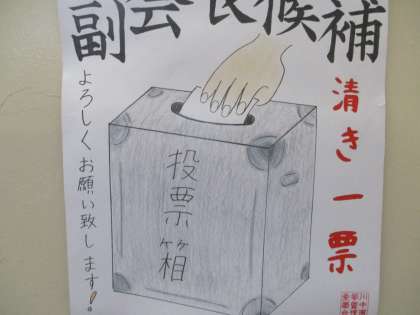 副会長候補
清き一票
投票箱
よろしくお願い致します!